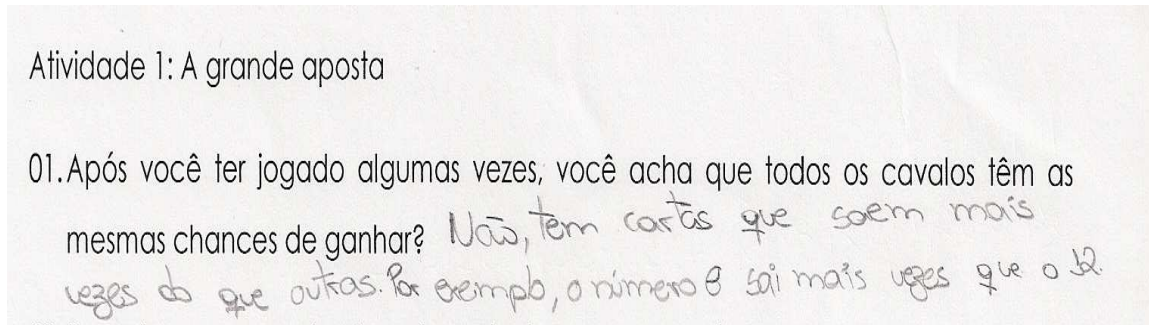 Atividade 1: A grande aposta
01. Após você ter jogado algumas vezes, você acha que todos os cavalos têm as
mesmas chances de ganhar? Não, tem cartas que saem mais
vezes do que outras. Por exemplo, o número 8 sai mais vezes que o 12.